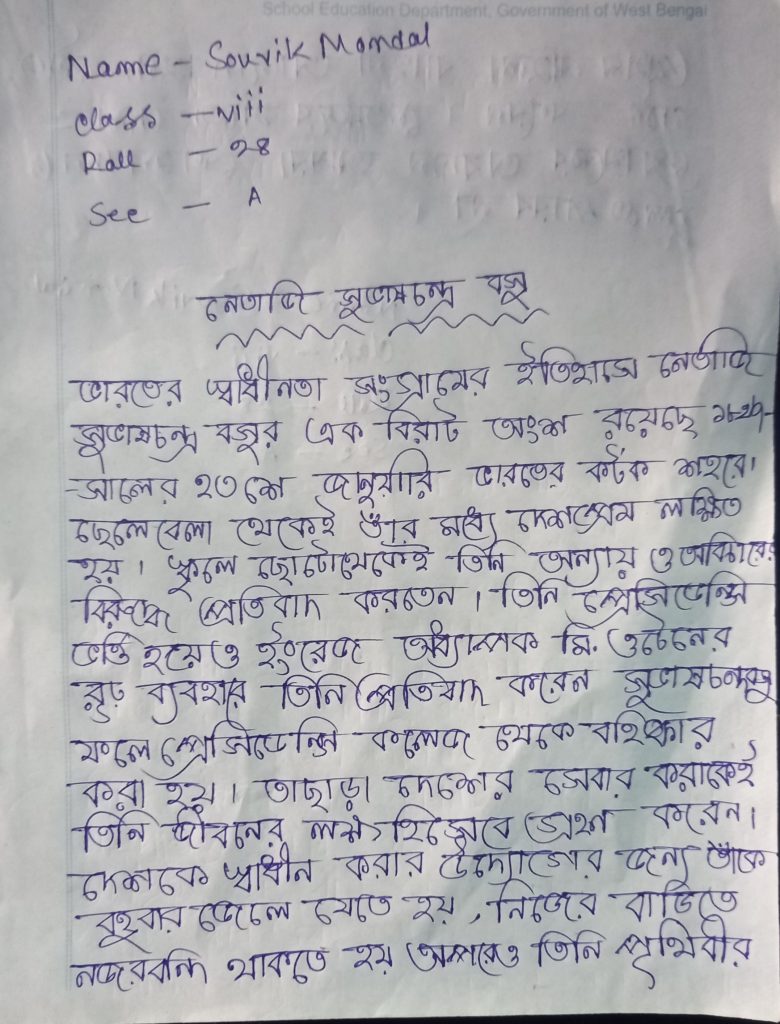 School Education Department, Government of West Bengal
Name - Sourik Mondal
Class - Viii
Roll - 28
Sec - A
নেতাজি সুভাষচন্দ্র বসু
ভারতের স্বাধীনতা সংগ্রামের ইতিহাসে নেতাজি
সুভাষচন্দ্র বসুর এক বিরাট অংশ রয়েছে ১৮৯৭
সালের ২৩শে জানুয়ারি ভারতের কটক শহরে।
ছেলেবেলা থেকেই তাঁর মধ্যে দেশপ্রেম লক্ষিত
হয়। স্কুলে ছোটোথেকেই তিনি অন্যায় ও অবিচারের
বিরুদ্ধে প্রতিবাদ করতেন। তিনি প্রেসিডেন্সি
ভর্তি হয়েও ইংরেজ অধ্যাপক মি. ওটেনের
রুঢ় ব্যবহার তিনি প্রতিবাদ করেন সুভাষচন্দ্রবসু
ফলে প্রেসিডেন্সি কলেজ থেকে বহিষ্কার
করা হয়। তাছাড়া দেশের সেবার করাকেই
তিনি জীবনের লক্ষ্য হিসেবে গ্রহণ করেন।
দেশকে স্বাধীন করার উদ্যোগের জন্য তাঁকে
বহুবার জেলে যেতে হয়, নিজের বাড়িতে
নজরবন্দি থাকতে হয় তিনি পৃথিবীর